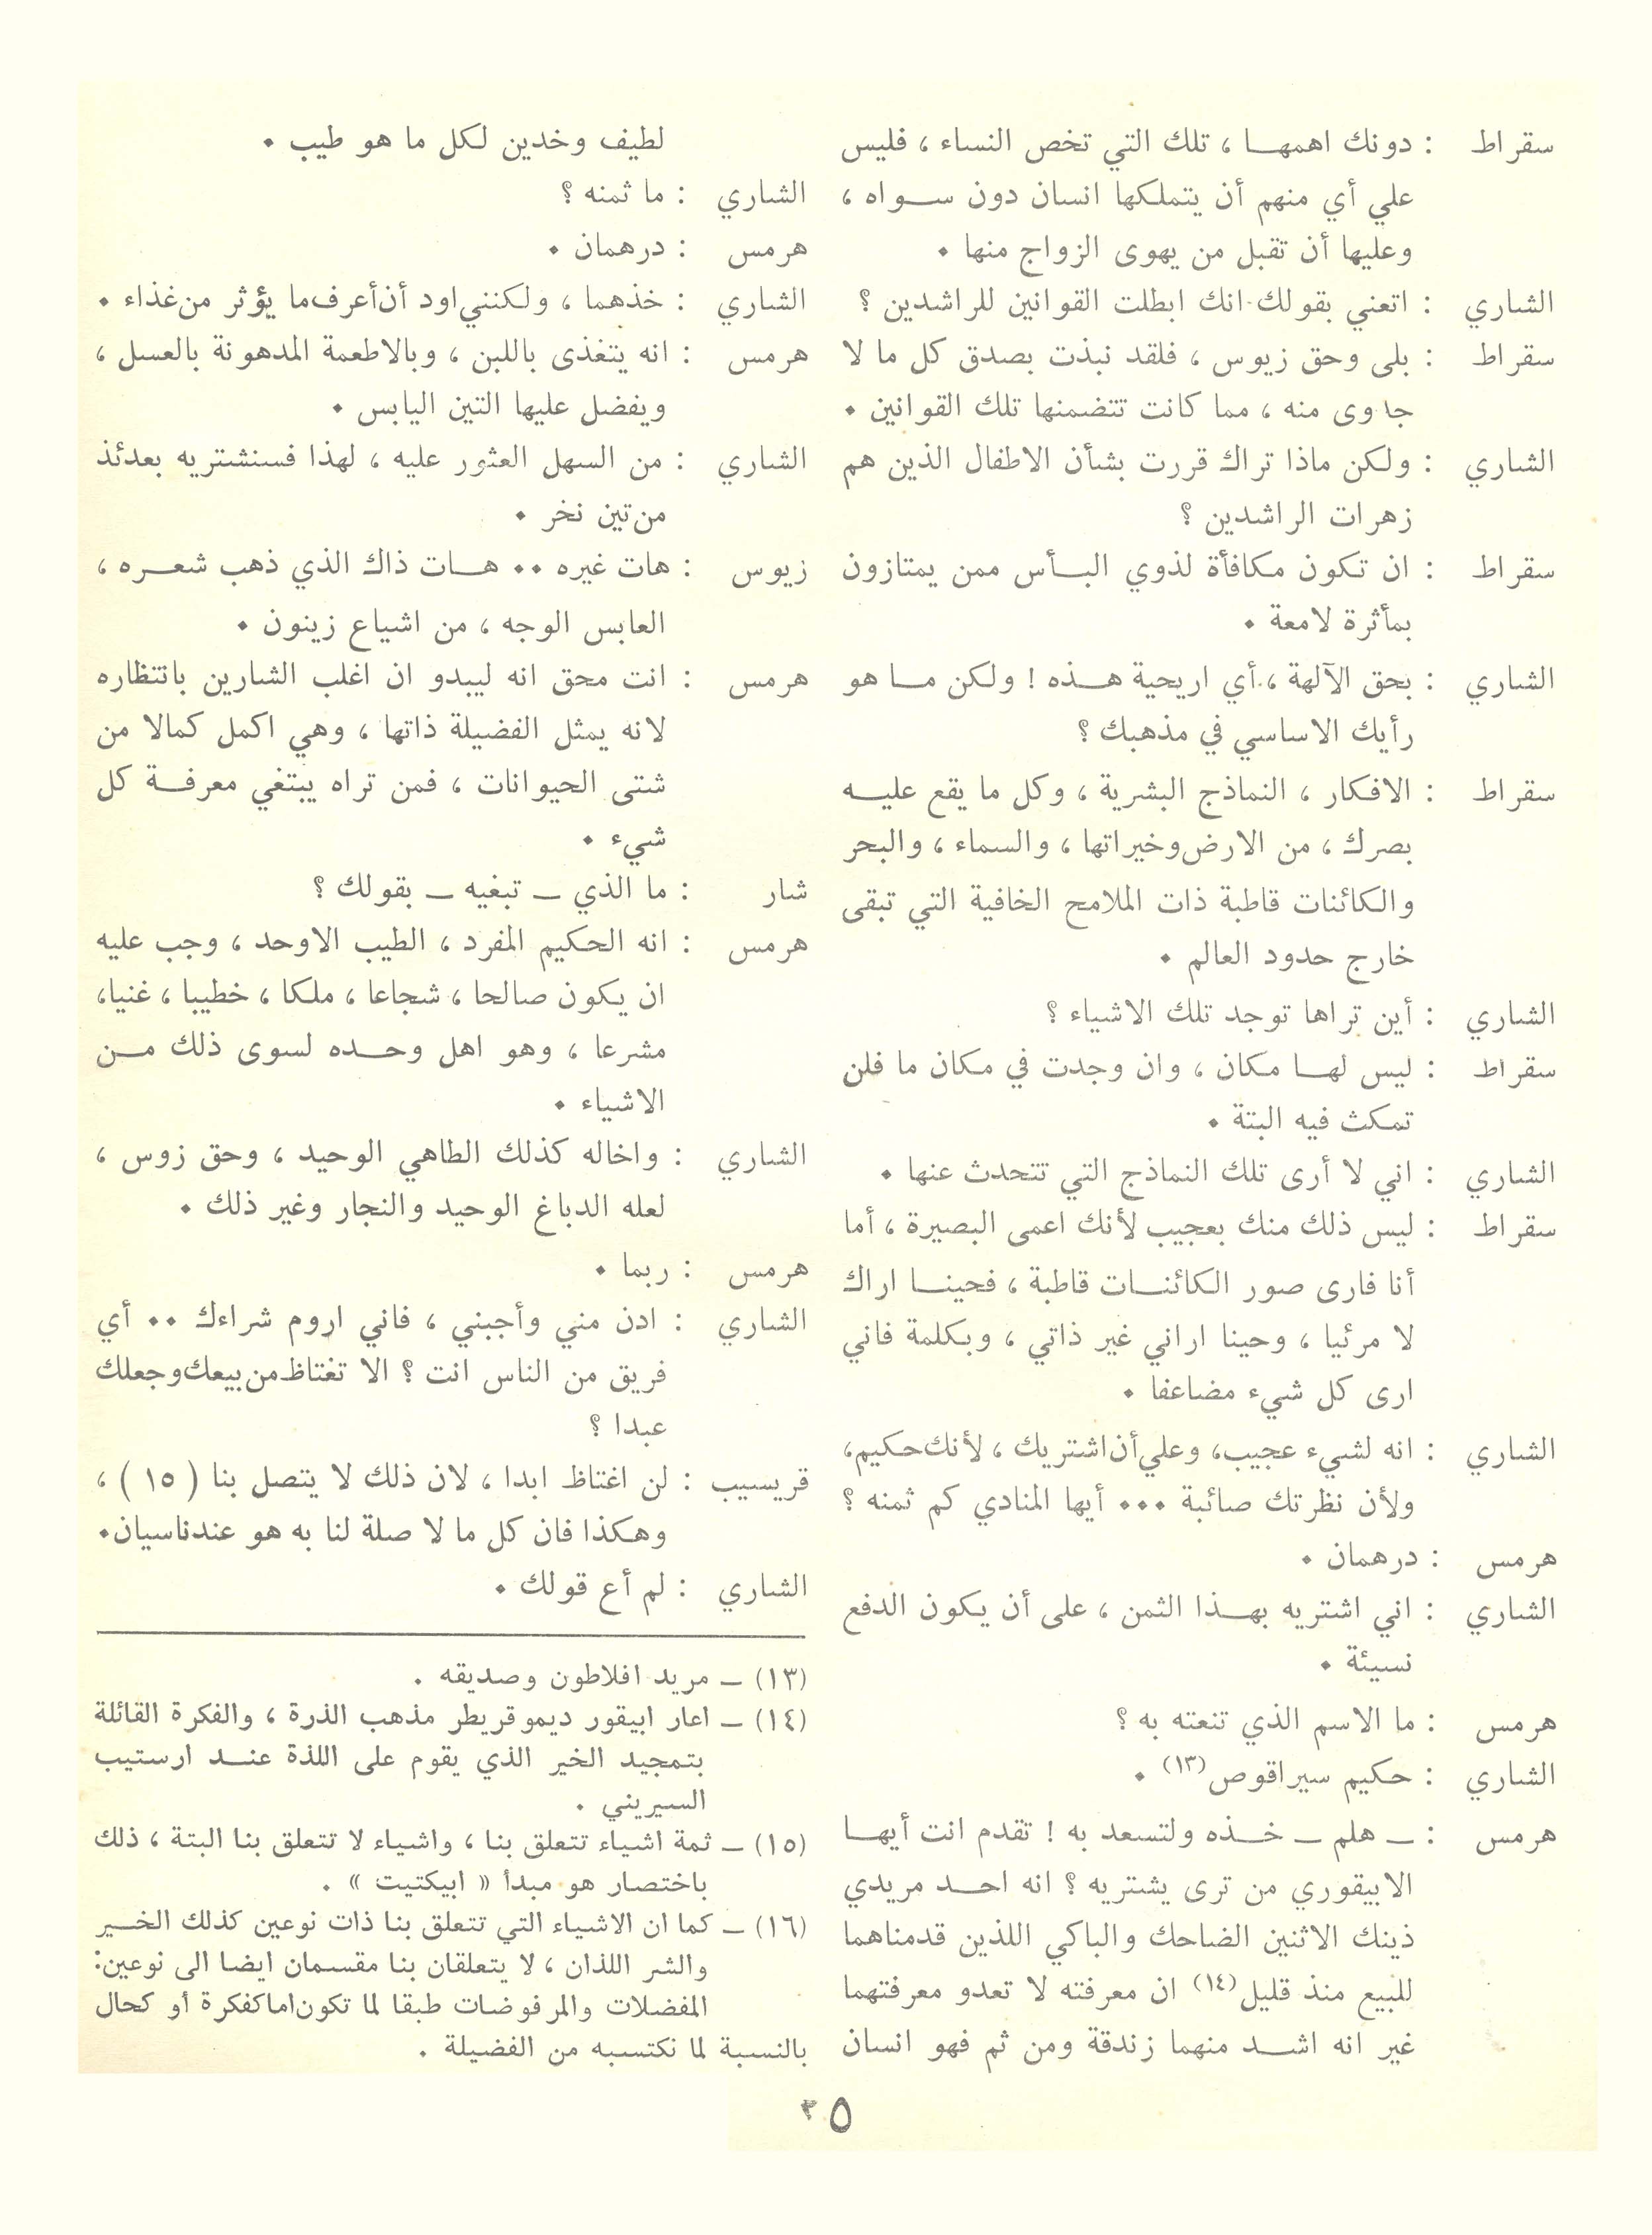 سقراط : دونك اهمهـا ، تلك التي تخص النساء ، فليس
علي أي منهم أن يتملكها انسان دون سـواه ،
وعليها أن تقبل من يهوى الزواج منها .
الشاري : اتعني بقولك انك ابطلت القوانين للراشدين ؟
سقراط : بلى وحق زيوس ، فلقد نبذت بصدق كل ما لا
جدوى منه ، مما كانت تتضمنها تلك القوانين .
الشاري : ولكن ماذا تراك قررت بشأن الاطفال الذين هم
زهرات الراشدين ؟
سقراط : ان تكون مكافأة لذوي البـأس ممن يمتازون
بمأثرة لامعة .
الشاري : بحق الآلهة ، أي اريحية هـذه ! ولكن مـا هو
رأيك الاساسي في مذهبك ؟
سقراط : الافكار ، النماذج البشرية ، وكل ما يقع عليـه
بصرك ، من الارض وخيراتها ، والسماء ، والبحر
والكائنات قاطبة ذات الملامح الخافية التي تبقى
خارج حدود العالم .
الشاري : أين تراها توجد تلك الاشياء ؟
سقراط : ليس لهـا مكان ، وان وجدت في مكان ما فلن
تمكث فيه البتة .
الشاري : اني لا أرى تلك النماذج التي تتحدث عنها .
سقراط : ليس ذلك منك بعجيب لأنك اعمى البصيرة ، أما
أنا فارى صور الكائنـات قاطبة ، فحينـا اراك
لا مرئيا ، وحينا اراني غير ذاتي ، وبكلمة فاني
ارى كل شيء مضاعفا .
الشاري : انه لشيء عجيب، وعلي أن اشتريك ، لأنك حكيم،
ولأن نظرتك صائبة ... أيها المنادي كم ثمنه ؟
هرمس : درهمان .
الشاري : اني اشتريه بهـذا الثمن ، على أن يكون الدفع
نسيئة .
هرمس : ما الاسم الذي تنعته به ؟
الشاري : حكيم سيراقوص (١٣) .
هرمس : ـ هلم ـ خـذه ولتسعد به ! تقدم انت أيهـا
الابيقوري من ترى يشتريه ؟ انه احـد مريدي
ذينك الاثنين الضاحك والباكي اللذين قدمناهما
للبيع منذ قليل (١٤) ان معرفته لا تعدو معرفتهما
غير انه اشـد منهما زندقة ومن ثم فهو انسان
لطيف وخدين لكل ما هو طيب .
الشاري : ما ثمنه ؟
هرمس : درهمان .
الشاري : خذهما ، ولكنني اود أن أعرف ما يؤثر من غذاء .
هرمس : انه يتغذى باللبن ، وبالاطعمة المدهونة بالعسل ،
ويفضل عليها التين اليابس .
الشاري : من السهل العثور عليه ، لهذا فسنشتريه بعدئذ
من تين نخر .
زيوس : هات غيره .. هـات ذاك الذي ذهب شعـره ،
العابس الوجه ، من اشياع زينون .
هرمس : انت محق انه ليبدو ان اغلب الشارين بانتظاره
لانه يمثل الفضيلة ذاتها ، وهي اكمل كمالا من
شتى الحيوانات ، فمن تراه يبتغي معرفـة كل
شيء .
شار : ما الذي ـ تبغيه ـ بقولك ؟
هرمس : انه الحكيم المفرد ، الطيب الاوحد ، وجب عليه
ان يكون صالحا ، شجاعا ، ملكا ، خطيبا ، غنيا،
مشرعا ، وهو اهل وحـده لسوى ذلك مـن
الاشياء .
الشاري : واخاله كذلك الطاهي الوحيد ، وحق زوس ،
لعله الدباغ الوحيد والنجار وغير ذلك .
هرمس : ربما .
الشاري : ادن مني وأجبني ، فاني اروم شراءك .. أي
فريق من الناس انت ؟ الا تغتاظ من بيعك وجعلك
عبدا ؟
قريسيب : لن اغتاظ ابدا ، لان ذلك لا يتصل بنا ( ١٥ ) ،
وهكذا فان كل ما لا صلة لنا به هو عندنا سيان.
الشاري : لم أع قولك .
(١٣) ـ مريد افلاطون وصديقه .
(١٤) ـ اعار ابيقور ديموقريطر مذهب الذرة ، والفكرة القائلة
بتمجيد الخير الذي يقوم على اللذة عنـد ارستيب
السيريني .
(١٥) ـ ثمة اشياء تتعلق بنا ، واشياء لا تتعلق بنا البتة ، ذلك
باختصار هو مبدأ « ابيكتيت » .
(١٦) ـ كما ان الاشياء التي تتعلق بنا ذات نوعين كذلك الخـير
والشر اللذان ، لا يتعلقان بنا مقسمان ايضا الى نوعين:
المفضلات والمرفوضات طبقا لما تكون اما كفكرة أو كحال
بالنسبة لما نكتسبه من الفضيلة .
٣٥